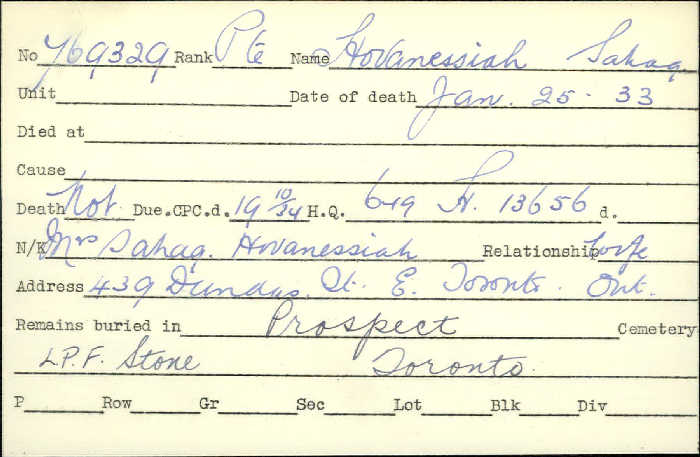 No 769329 Rank Pte Name Hovanessiah Sahag
Unit Date of death Jan. 25 - 33
Died at
Cause
Death Not Due.CPC.d. 19 10/34 H.Q. 649 H. 13656 d.
N/K Mrs Sahag. Hovanessiah Relationship Wife
Address 439 Dundas. St. E. Toronto. Ont.
Remains buried in Prospect Cemetery
L.P.F. Stone Toronto.
P Row Gr Sec Lot Blk Div